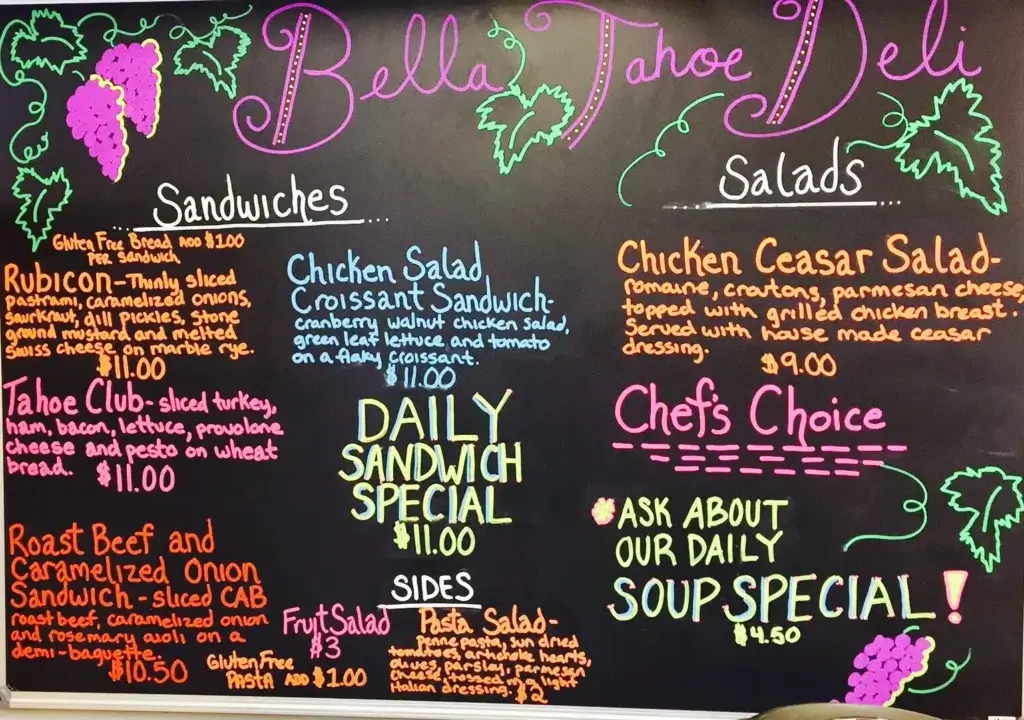 Bella Tahoe Deli
Sandwiches
Gluten Free Bread ADD $1.00
PER Sandwich
Rubicon - Thinly sliced
pastrami, caramelized onions,
saurkraut, dill pickles, stone
ground mustard and melted
swiss cheese on marble rye.
$11.00
Tahoe Club - sliced turkey,
ham, bacon, lettuce, provolone
cheese and pesto on wheat
bread.
$11.00
Roast Beef and
Caramelized Onion
Sandwich - sliced CAB
roast beef, caramelized onion
and rosemary aioli on a
demi-baguette.
$10.50
Chicken Salad
Croissant Sandwich-
cranberry walnut chicken salad,
green leaf lettuce and tomato
on a flaky croissant.
$11.00
DAILY
SANDWICH
SPECIAL
$11.00
SIDES
Fruit Salad
$3
Gluten Free
PASTA ADD $1.00
Pasta Salad-
Penne pasta, sun dried
tomatoes, artichoke hearts,
olives, parsley, parmesan
cheese, tossed in a light
Italian dressing. $2
Salads
Chicken Ceasar Salad-
romaine, croutons, parmesan cheese,
topped with grilled chicken breast.
Served with house made ceasar
dressing.
$9.00
Chef's Choice
*ASK ABOUT
OUR DAILY
SOUP SPECIAL!
$4.50